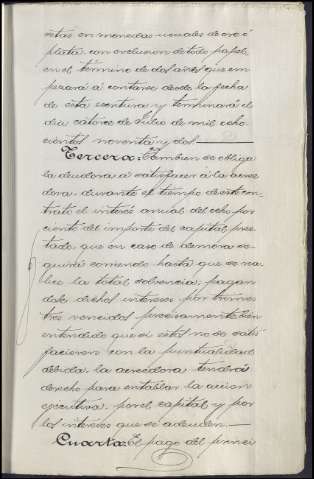 éstas en monedas usuales de oro ó
plata con exclusion de todo papel,
en el término de dos años que em
pezará á contarse desde la fecha
de ésta escritura y terminará el
dia catorce de Julio de mil ocho
cientos noventa y dos
Tercera: Tambien se obliga
la deudora á satisfacer á la acree
dora durante el tiempo de este con
trato el interés anual del ocho por
ciento del importe del capital pres
tado que en caso de demora se
guirá corriendo hasta que se rea
lice la total solvencia; pagan
dole dichos intereses por trimes
tres vencidos precisamente bien
entendido que si éstos no se satis
facieren con la puntualidad
debida la acreedora tendrá
derecho para entablar la accion
ejecutiva por el capital y por
los intereses que se adeuden.
Cuarta: El pago del princi